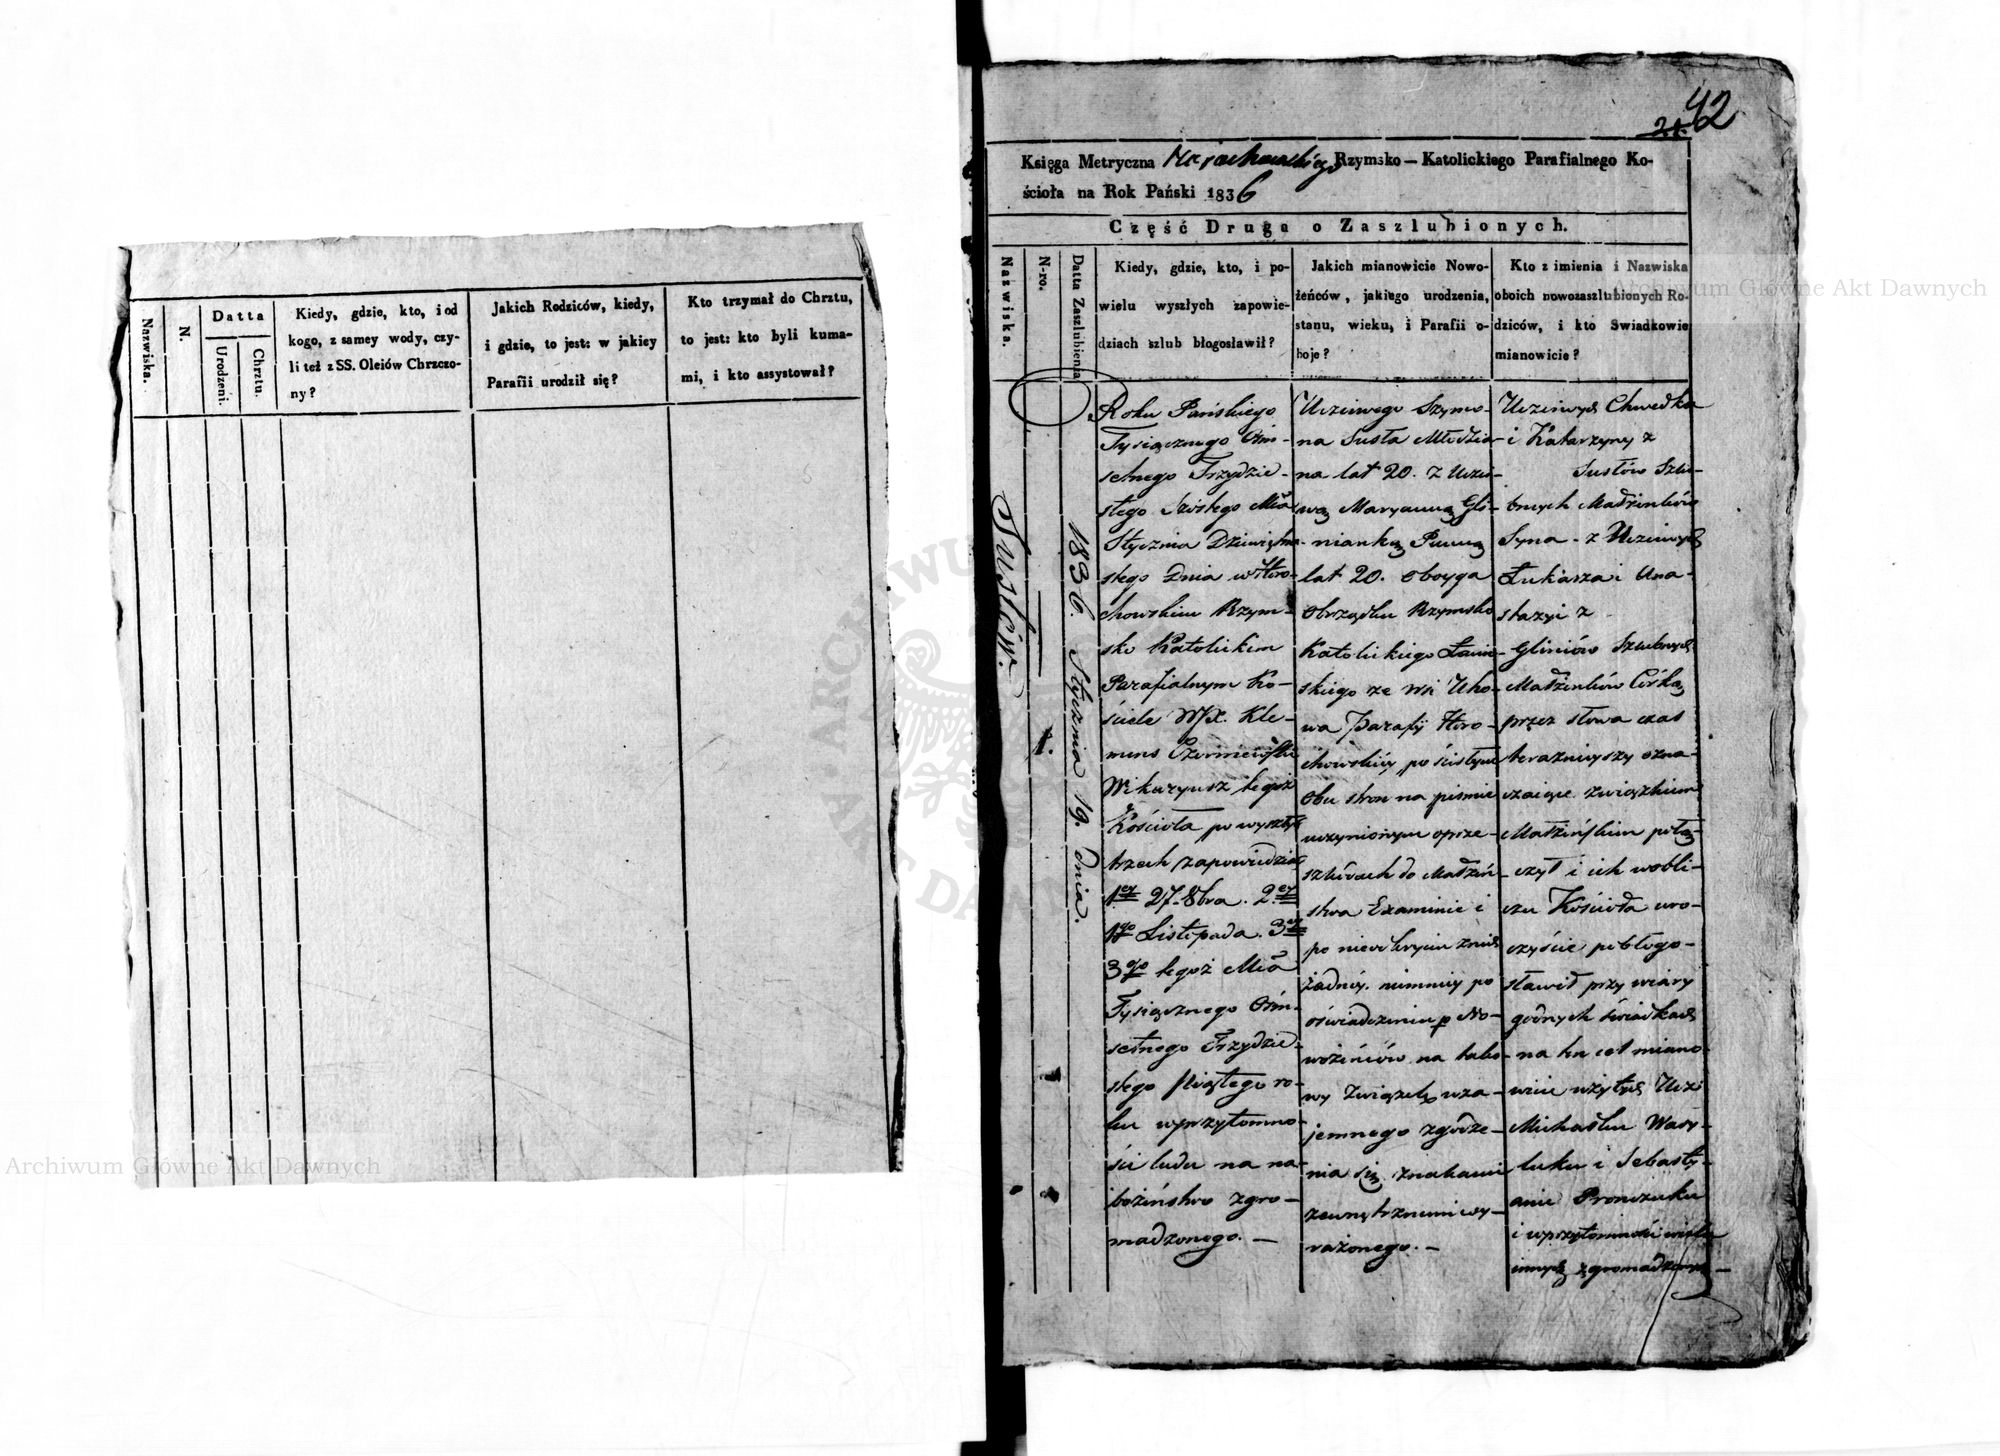 Nazwiska.
N.
Datta
Urodzeni.
Chrztu.
Kiedy, gdzie, kto, i od
kogo, z samey wody, czy-
li też z SS. Oleiów Chrzczo-
ny?
Jakich Rodziców, kiedy,
i gdzie, to jest: w jakiey
Parafii urodził się?
Kto trzymał do Chrztu,
to jest: kto byli kuma-
mi, i kto assystował?
42
Księga Metryczna Rzymsko-Katolickiego Parafialnego Ko-
ścioła na Rok Pański 1836
Część Druga o Zaszlubionych.
Nazwiska.
N-ro.
Datta Zaszlubienia
Kiedy, gdzie, kto, i po-
wielu wyszłych zapowie-
dziach szlub błogosławił?
Jakich mianowicie Nowo-
żeńców, jakiego urodzenia,
stanu, wieku, i Parafii o-
boje?
Kto z imienia i Nazwiska
oboich nowozaszlubionych Ro-
dziców, i kto Swiadkowie
mianowicie?
Susłów.
1.
1836. Stycznia 19. dnia.
Roku Pańskiego
Tysiącznego Ośm-
setnego Trzydzie-
stego Szóstego Mca
Stycznia Dziewiętna-
stego Dnia w Horo-
chowskim Rzym-
sko Katolickim
Parafialnym Ko-
ściele WJX. Kle-
mens
Wikaryusz tegoż
Kościoła po wyszłych
trzech zapowiedziach
1ey 27. 8bra. 2ey
1go Listopada. 3ey
3go tegoż Mca
Tysiącznego Ośm-
setnego Trzydzie-
stego Piątego ro-
ku w przytomno-
ści ludu na na-
bożeństwo zgro-
madzonego. —
Uczciwego Szymo-
na Susła Młodzia-
na lat 20. z Uczci-
wą Maryanną Gli-
nianką Panną
lat 20. oboyga
Obrządku Rzymsko
Katolickiego Łaciń-
skiego ze wsi
Parafij Horo-
chowskiey po ścisłym
Obu stron na piśmie
uczynionym o prze-
szkodach do Małżeń-
stwa Examinie i
po nieodkryciu z nich
żadney. niemniey po
oświadczeniu p No-
wożeńców na tako-
wy Związek wza-
jemnego zgodze-
nia się znakami
zewnętrznemi wy-
rażonego. —
Uczciwych Chwedka
i Katarzyny z
Susłów Szlu-
bnych Małżonków
Syna - z Uczciwych
Łukasza i Ana-
stazyi z
Gliniów Szlubnych
Małżonków Córką
przez słowa czas
teraznieyszy ozna-
czaiące związkiem
Małżeńskim połą-
czył i ich w obli-
czu Kościoła uro-
czyście pobłogo-
sławił przy wiary
godnych świadkach
na ten cel miano-
wicie użytych Ucz:
Michałku Wasy-
luku i Sebasty-
anie
i w przytomności wielu
innych zgromadzonych —
Archiwum Główne Akt Dawnych
Archiwum Główne Akt Dawnych